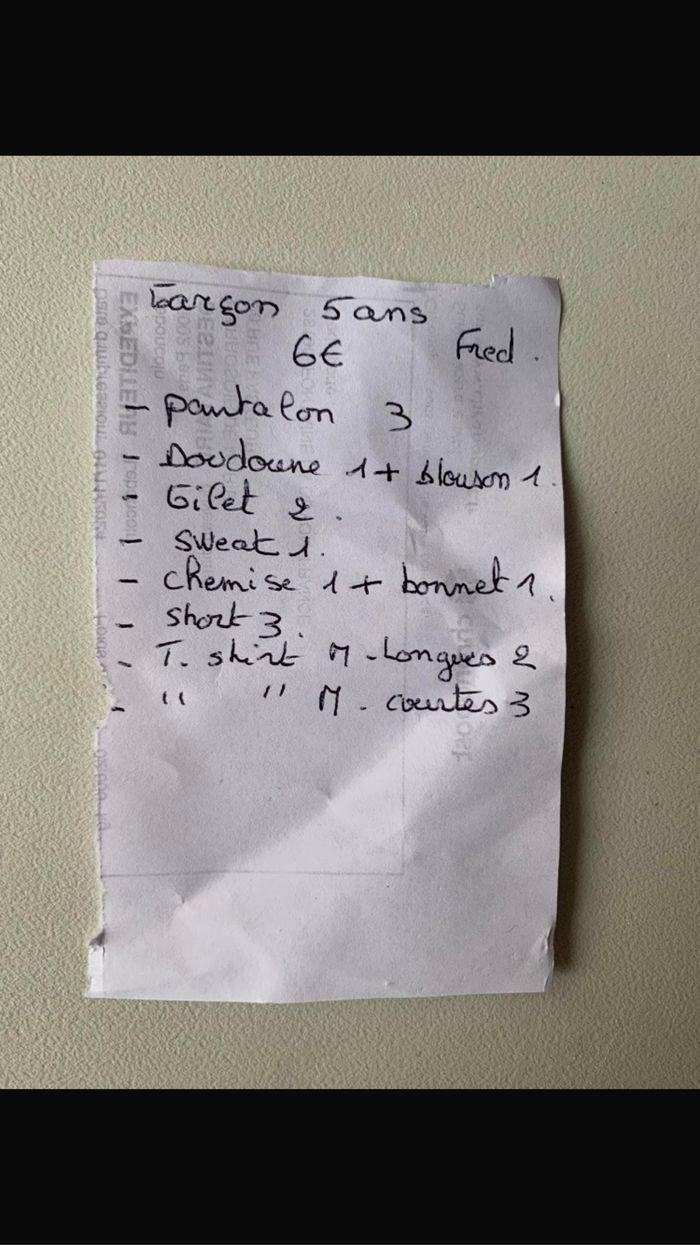 Garçon 5ans
6€ Fred.
- pantalon 3
- Doudoune 1 + blouson 1.
- Gilet 2.
- Sweat 1.
- chemise 1 + bonnet 1.
- short 3.
- T. shirt M. Longues 2
- " " M. courtes 3
EXPEDITEUR